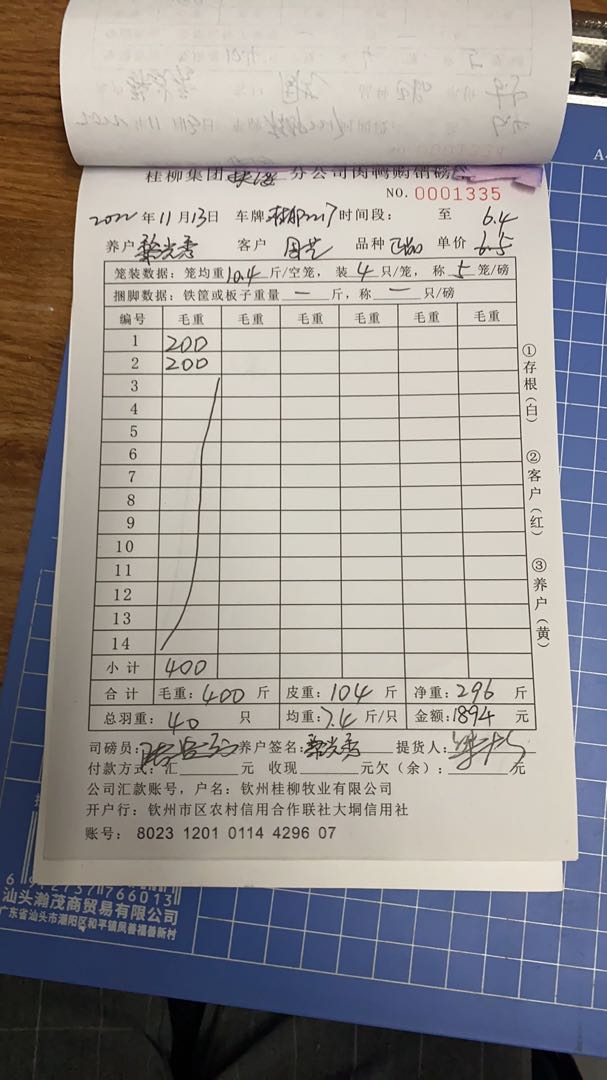 桂柳集团 分公司肉鸭购销磅
NO. 0001335
2022年11月13日 车牌 时间段: 至 6.4
养户 黎光秀 客户 品种 单价 6.5
笼装数据: 笼均重10.4斤/空笼, 装4只/笼, 称5笼/磅
捆脚数据: 铁筐或板子重量一斤, 称一只/磅
编号 毛重 毛重 毛重 毛重 毛重 毛重
1 200
2 200
3
4
5
6
7
8
9
10
11
12
13
14
小计 400
合计 毛重: 400 斤 皮重: 104 斤 净重: 296 斤
总羽重: 40 只 均重: 7.4 斤/只 金额: 1894 元
司磅员: 养户签名: 黎光秀 提货人:
付款方式: 汇 元 收现 元欠(余): 元
公司汇款账号, 户名: 钦州桂柳牧业有限公司
开户行: 钦州市区农村信用合作联社大垌信用社
账号: 8023 1201 0114 4296 07
①存根(白)
②客户(红)
③养户(黄)
766013
汕头瀚茂商贸易有限公司
广东省汕头市潮阳区和平镇凤善福善新村